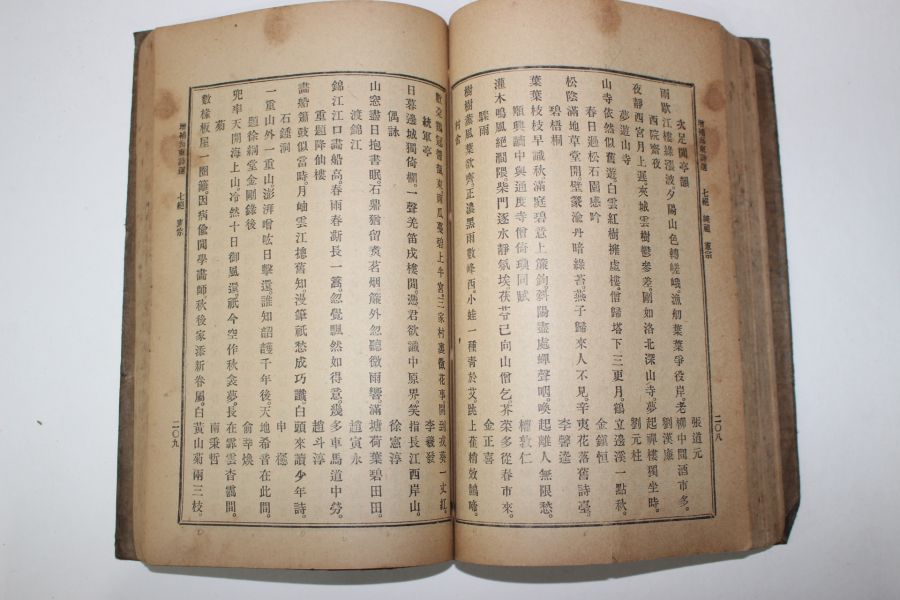 次足闌亭韻 張道元
雨歇江樓綠漲波。夕陽山色轉嵯峨。漁舠葉葉爭投岸。老柳中間酒市多。
西院齋夜 劉漢廉
夜靜西宮月上遲。夾城雲樹鬱參差。剛如洛北深山寺。夢起禪樓獨坐時。
夢遊山寺 劉元柱
山寺依然似舊遊。白雲紅樹擁虛樓。僧歸塔下三更月。鶴立邊溪一點秋。
春日過松石園感吟 金鎭恒
松陰滿地草堂開。壁叢淪丹暗綠苔。燕子歸來人不見。辛夷花落舊詩臺。
碧梧桐 李馨逵
葉葉枝枝早識秋。滿庭碧意上簾鉤。斜陽盡處蟬聲咽。喚起離人無限愁。
順興讀中與通度寺僧倚瑛同賦 權敦仁
灌木鳴風絕澗隈。柴門逐水靜氛埃。茯苓已向山僧乞。芥菜多從春市來。
驟雨 金正喜
樹樹薰風葉欲齊。正濃黑雨數峰西。小蛙一種靑於艾。跳上蕉梢效鵲啼。
村舍
統軍亭 李羲發
日暮邊城獨倚欄。一聲羌笛戍樓閒。憑君欲識中原界。笑指長江西岸山。
偶詠 徐憲淳
山窓盡日抱書眠。石鼎猶留煑茗烟。簾外忽聽微雨響。滿塘荷葉碧田田。
渡錦江 趙寅永
錦江江口畵船高。春雨春澌長一篙。忽覺飄然如得意。幾多車馬道中勞。
重題降仙樓 趙斗淳
畵船簫鼓似當時。月岫雲江摠舊知。漫筆祇愁成巧讖。白頭來讀少年詩。
石鍾洞 申櫶
一重山外一重山。澎湃噌吰日擊還。誰知詔頀千年後。天地希音在此間。
題徐絅堂金剛錄後 兪莘煥
兜率天開海上山。冷然十日御風還。祇今空作秋衾夢。長在靈雲杳靄間。
菊 南秉哲
數椽板屋一圈籬。因病偸閒學畵師。秋後家添新眷屬。白黃山菊兩三枝。
增補海東詩選 七絕 純祖 憲宗
二〇八
增補海東詩選 七絕 憲宗
二〇九